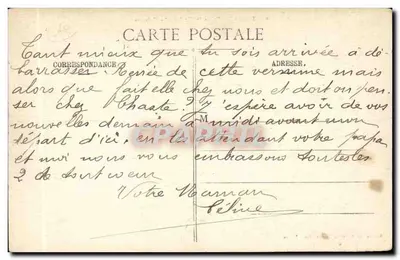 CARTE POSTALE
Tant mieux que tu sois arrivée à dé-
CORRESPONDANCE ADRESSE.
barrasser de cette vermine mais
alors que fait elle chez nous et doit on pen-
ser chez ? J'espère avoir de vos
nouvelles demain à midi avant mon
M
départ d'ici, en attendant votre papa
et moi nous vous embrassons toutes les
2 de tout cœur
Votre Maman
Céline